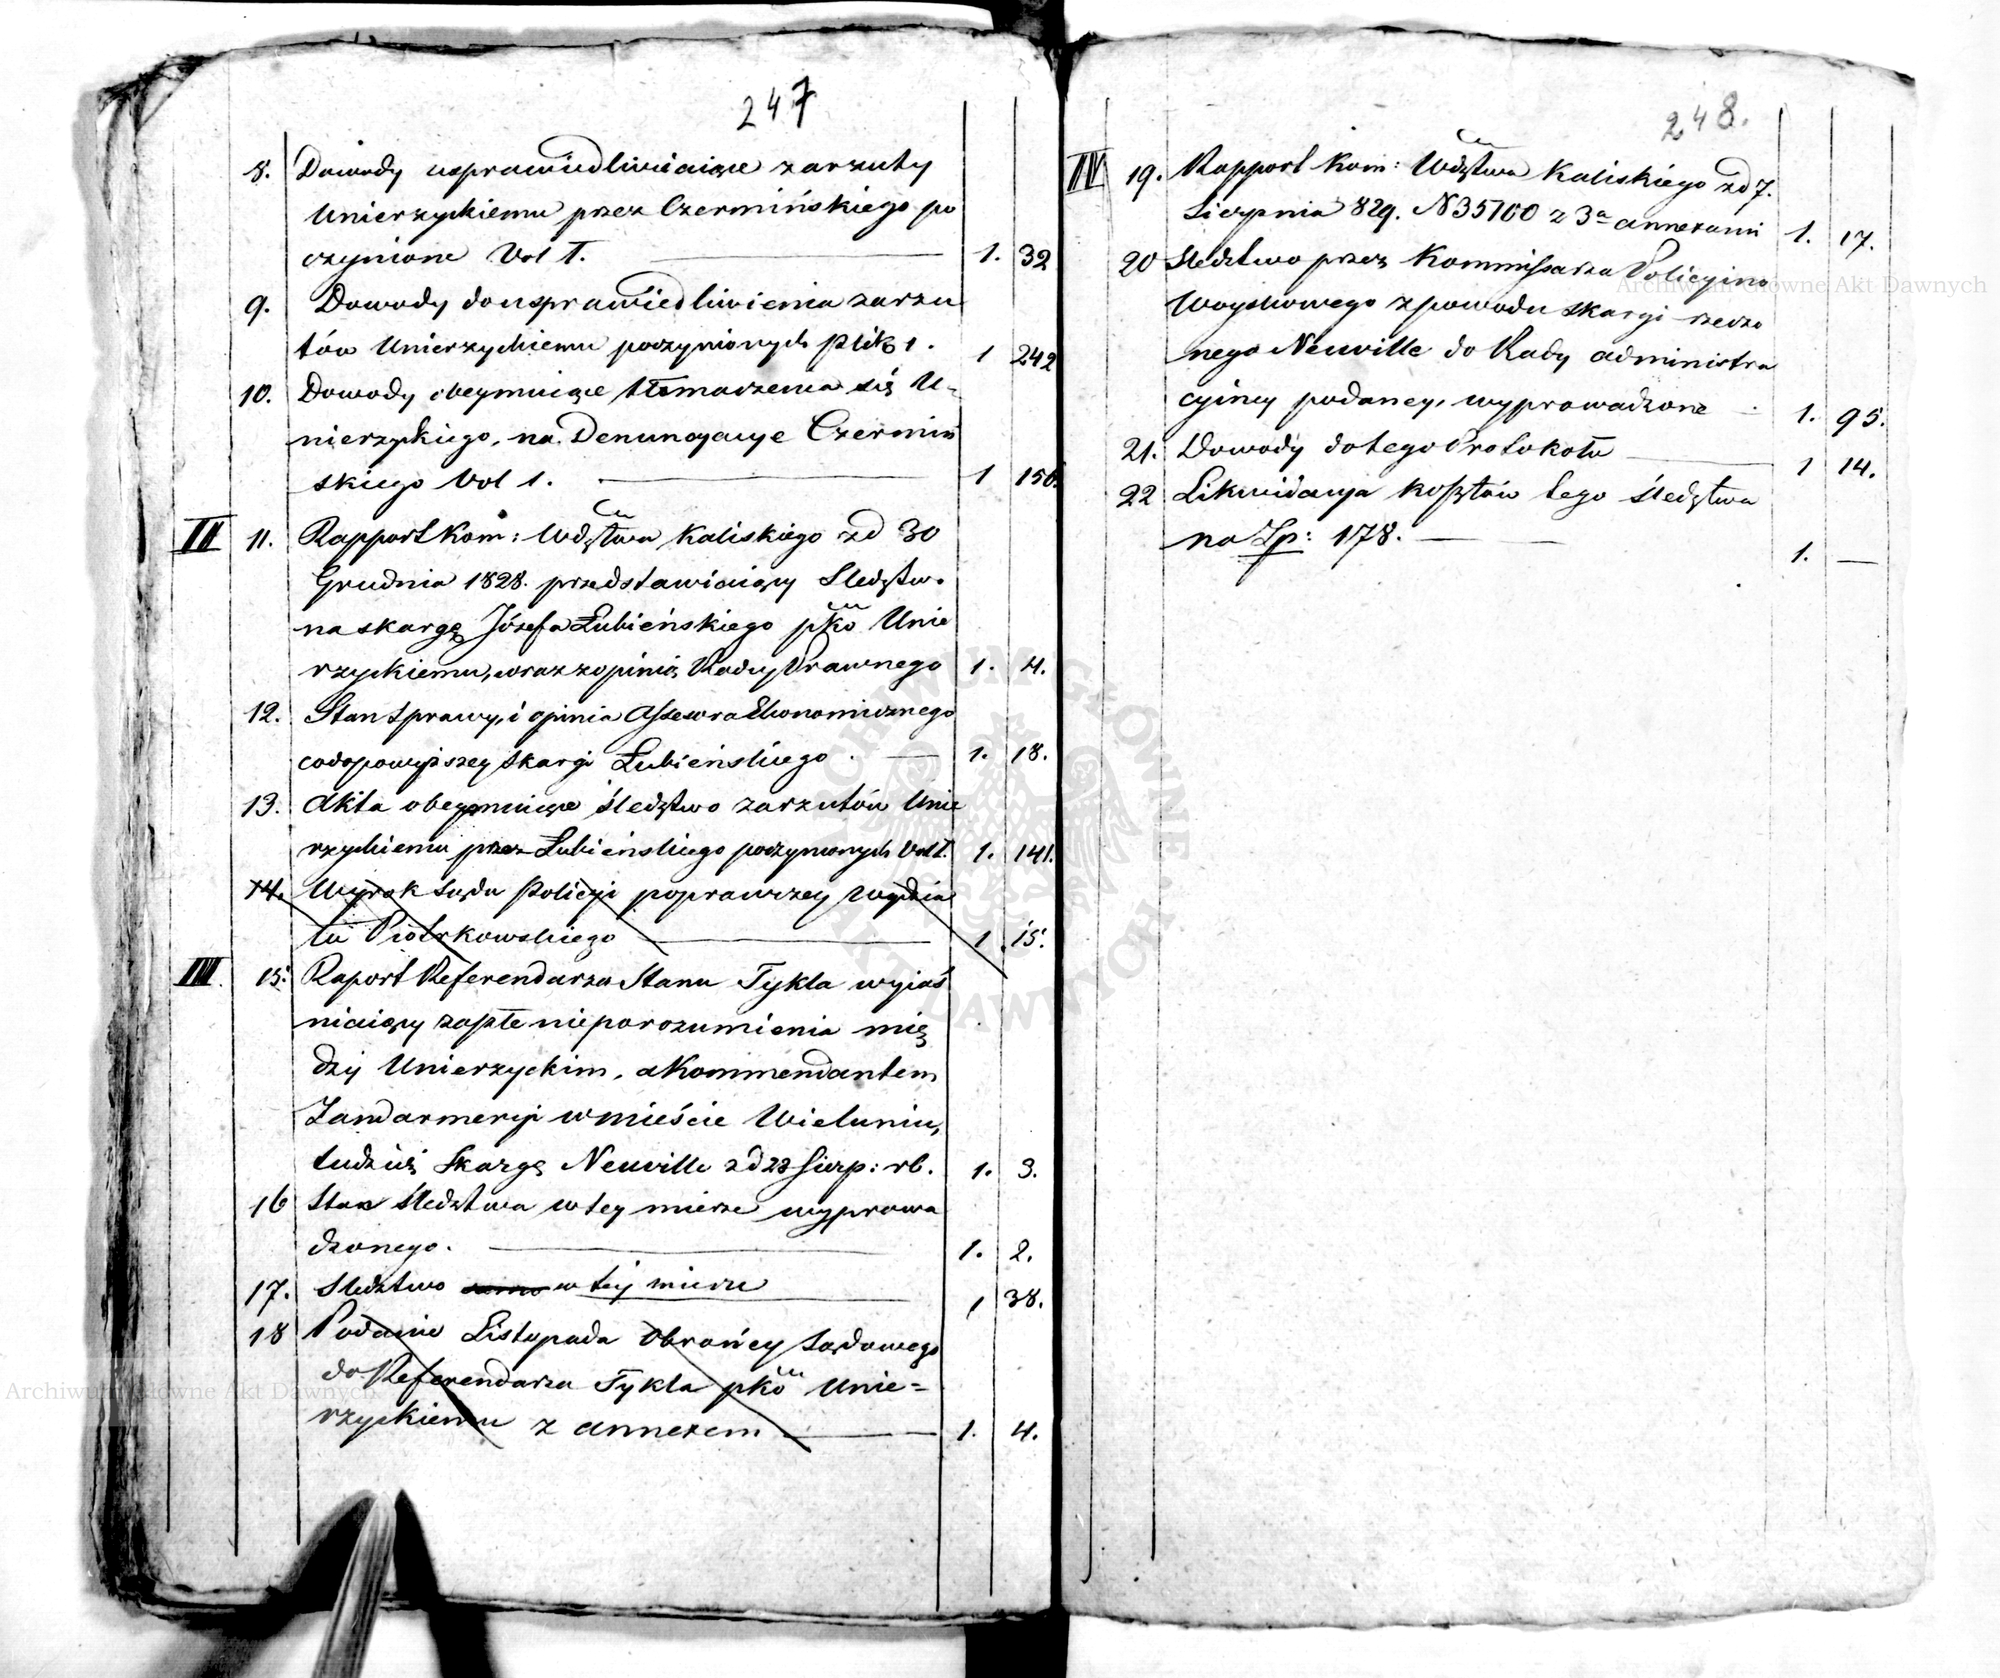 247
8. Dowody usprawiedliwiaiące zarzuty
Unierzyckiemu przez Czermińskiego po
czynione Vol 1. 1. 32
9. Dowody do usprawiedliwienia zarzu
tów Unierzyckiemu poczynionych plik 1. 1 242
10. Dowody obeymuiące tłomaczenia się U-
nierzyckiego, na Denuncyacye Czermiń
skiego Vol 1. 1 150.
II 11. Rapport Kom: Wdztwa Kaliskiego zd 30
Grudnia 1828. przedstawiaiący Sledztwo
na skargę Józefa Łubieńskiego pko Unie
rzyckiemu, wraz z opinią Radcy Prawnego 1. 4.
12. Stan sprawy, i opinia Assessora Ekonomicznego
co do powyższey skargi Łubieńskiego . 1. 18.
13. Akta obeymuiące śledztwo zarzutów Unie
rzyckiemu przez Łubieńskiego poczynionych Vol 1. 1. 141.
14. Wyrok Sądu Policyi poprawczey Wydzia
łu Piotrkowskiego 1 15.
III. 15. Raport Referendarza Stanu Tykla wyiaś
niaiący zaszłe nieporozumienia mię
dzy Unierzyckim, a Kommendantem
Żandarmeryi w mieście Wieluniu,
tudzież Skargę Neuville zd 28 Sierp: rb. 1. 3.
16 Stan śledztwa w tey mierze wyprowa
dzonego. 1. 2.
17. Sledztwo w tej mierze 1 38.
18 Podanie Listopada Obrońcy Sądowego
do Referendarza Tykla pko Unie=
rzyckiemu z annexem 1. 4.
248.
IV 19. Rapport Kom: Wdztwa Kaliskiego zd 7.
Sierpnia 829. N 35100 z 3a annexami 1. 17.
20 Sledztwo przez Kommissarza Policyino
Woyskowego z powodu skargi rzeczo
nego Neuville do Rady administra
cyiney podaney, wyprowadzone 1. 95.
21. Dowody do tego Protokołu 1 14.
22 Likwidacya kosztów tego śledztwa
na Zp: 178. 1. —
Archiwum Główne Akt Dawnych
Archiwum Główne Akt Dawnych
ARCHIWUM GŁÓWNE AKT DAWNYCH